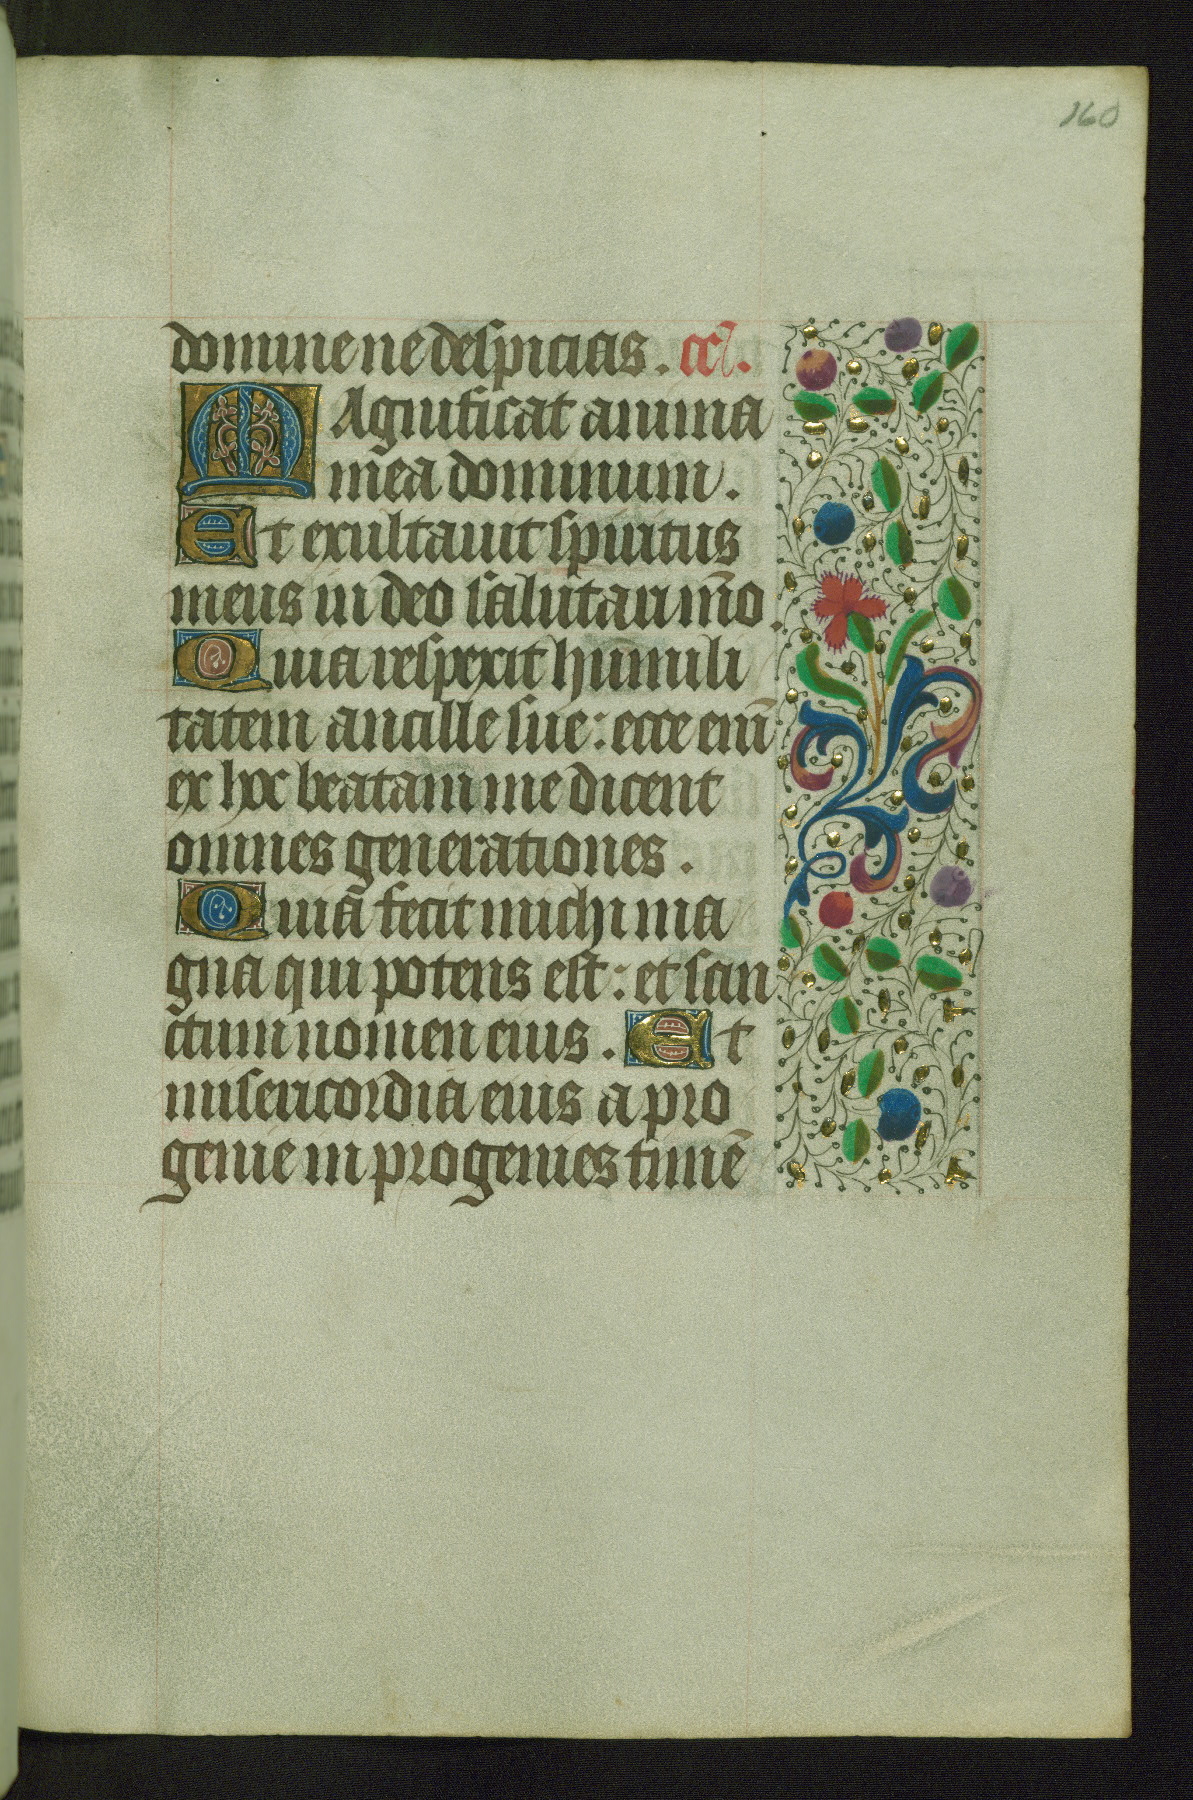 160
domine ne despicias. ccl.
Magnificat anima
mea dominum.
Et exultauit spiritus
meus in deo salutari m̅o.
Quia respexit humili
tatem ancille sue: ecce eni̅
ex hoc beatam me dicent
omnes generationes.
Quia̅ fecit michi ma
gna qui potens est: et san
ctum nomen eius. Et
misericordia eius a pro
genie in progenies time̅